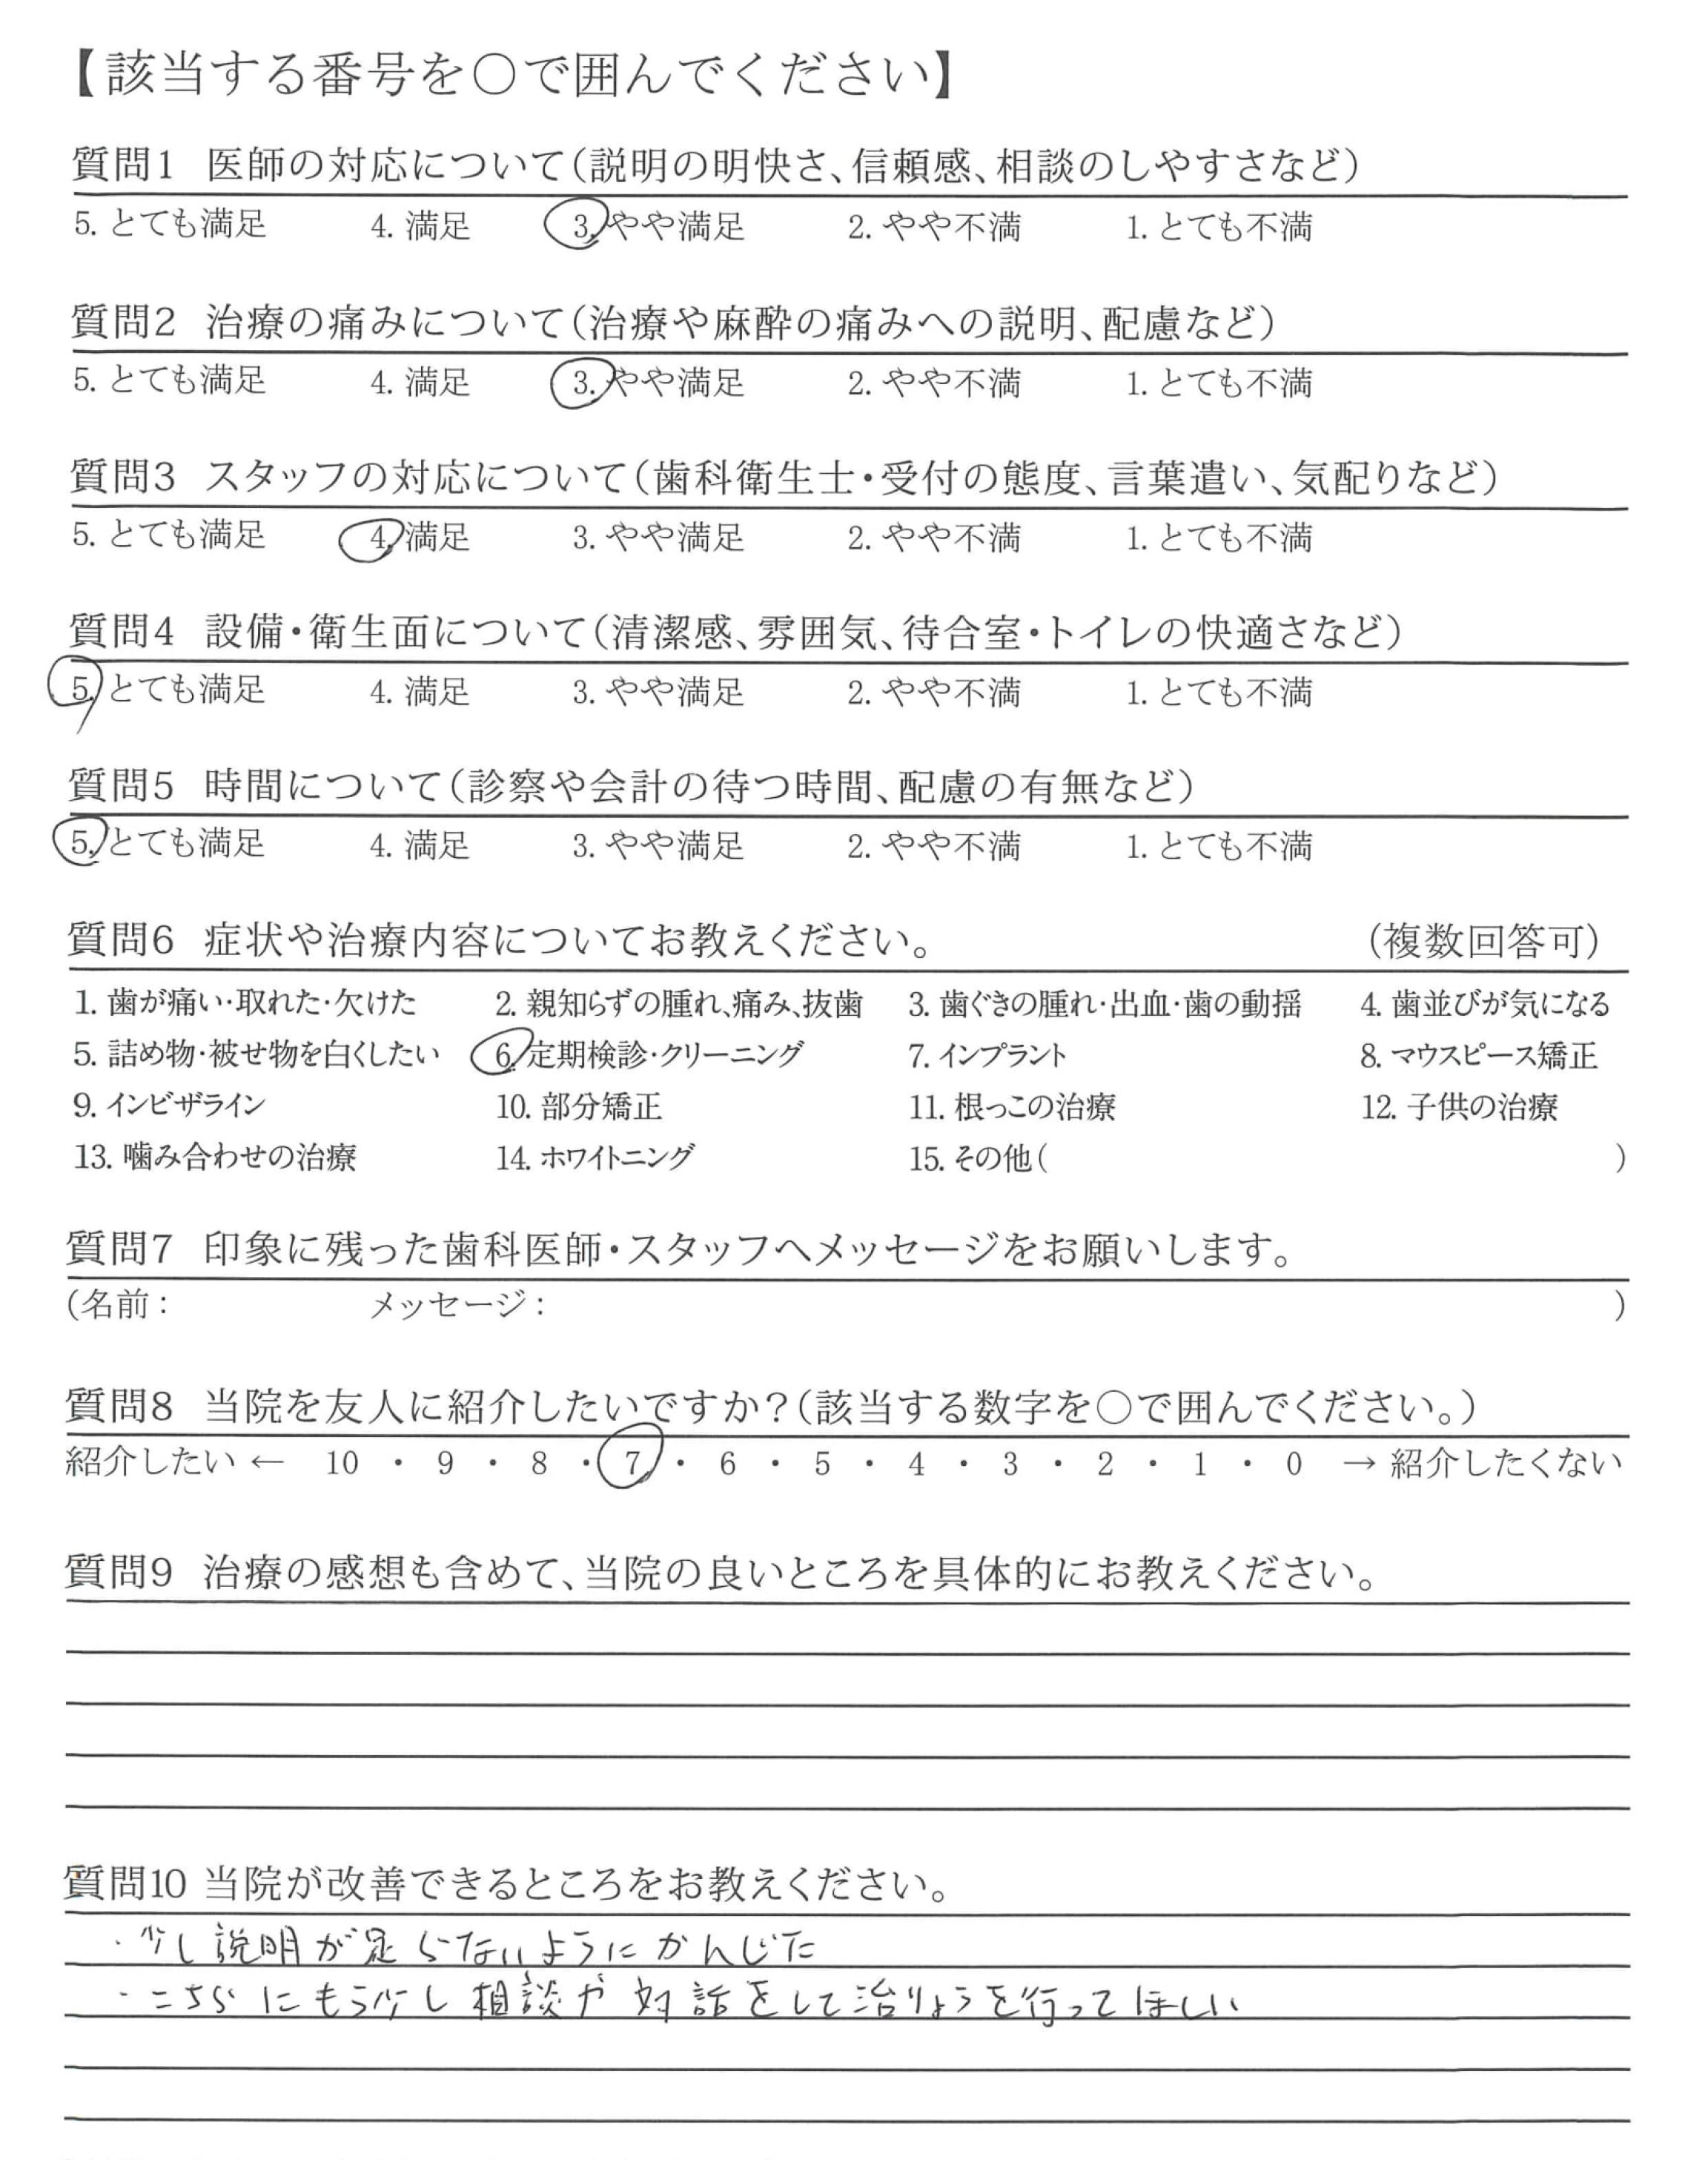 【該当する番号を○で囲んでください】
質問1 医師の対応について(説明の明快さ、信頼感、相談のしやすさなど)
5. とても満足 4. 満足 3. やや満足 2. やや不満 1. とても不満
質問2 治療の痛みについて(治療や麻酔の痛みへの説明、配慮など)
5. とても満足 4. 満足 3. やや満足 2. やや不満 1. とても不満
質問3 スタッフの対応について(歯科衛生士・受付の態度、言葉遣い、気配りなど)
5. とても満足 4. 満足 3. やや満足 2. やや不満 1. とても不満
質問4 設備・衛生面について(清潔感、雰囲気、待合室・トイレの快適さなど)
5. とても満足 4. 満足 3. やや満足 2. やや不満 1. とても不満
質問5 時間について(診察や会計の待つ時間、配慮の有無など)
5. とても満足 4. 満足 3. やや満足 2. やや不満 1. とても不満
質問6 症状や治療内容についてお教えください。 (複数回答可)
1. 歯が痛い・取れた・欠けた 2. 親知らずの腫れ、痛み、抜歯 3. 歯ぐきの腫れ・出血・歯の動揺 4. 歯並びが気になる
5. 詰め物・被せ物を白くしたい 6. 定期検診・クリーニング 7. インプラント 8. マウスピース矯正
9. インビザライン 10. 部分矯正 11. 根っこの治療 12. 子供の治療
13. 噛み合わせの治療 14. ホワイトニング 15. その他( )
質問7 印象に残った歯科医師・スタッフへメッセージをお願いします。
(名前: メッセージ: )
質問8 当院を友人に紹介したいですか?(該当する数字を○で囲んでください。)
紹介したい ← 10 ・ 9 ・ 8 ・ 7 ・ 6 ・ 5 ・ 4 ・ 3 ・ 2 ・ 1 ・ 0 → 紹介したくない
質問9 治療の感想も含めて、当院の良いところを具体的にお教えください。
質問10 当院が改善できるところをお教えください。
・少し説明が足らないようにかんじた
・こちらにもう少し相談や対話をして治りょうを行ってほしい